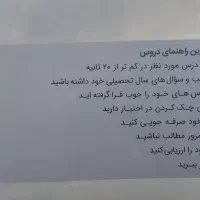 ین راهنمای دروس
درس مورد نظر در کم تر از ۲۰ ثانیه
ب و سؤال‌های سال تحصیلی خود داشته باشید
س های خود را خوب فرا گرفته اید
ی چک کردن در اختیار دارید
خود صرفه جویی کنید
مرور مطالب نباشید
د را ارزیابی کنید
ببرید